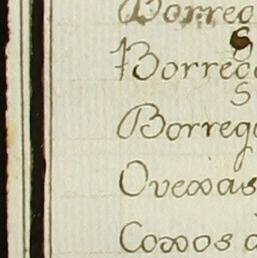 Borreg
Borreg
Borreg
Ovexas
Coxos d